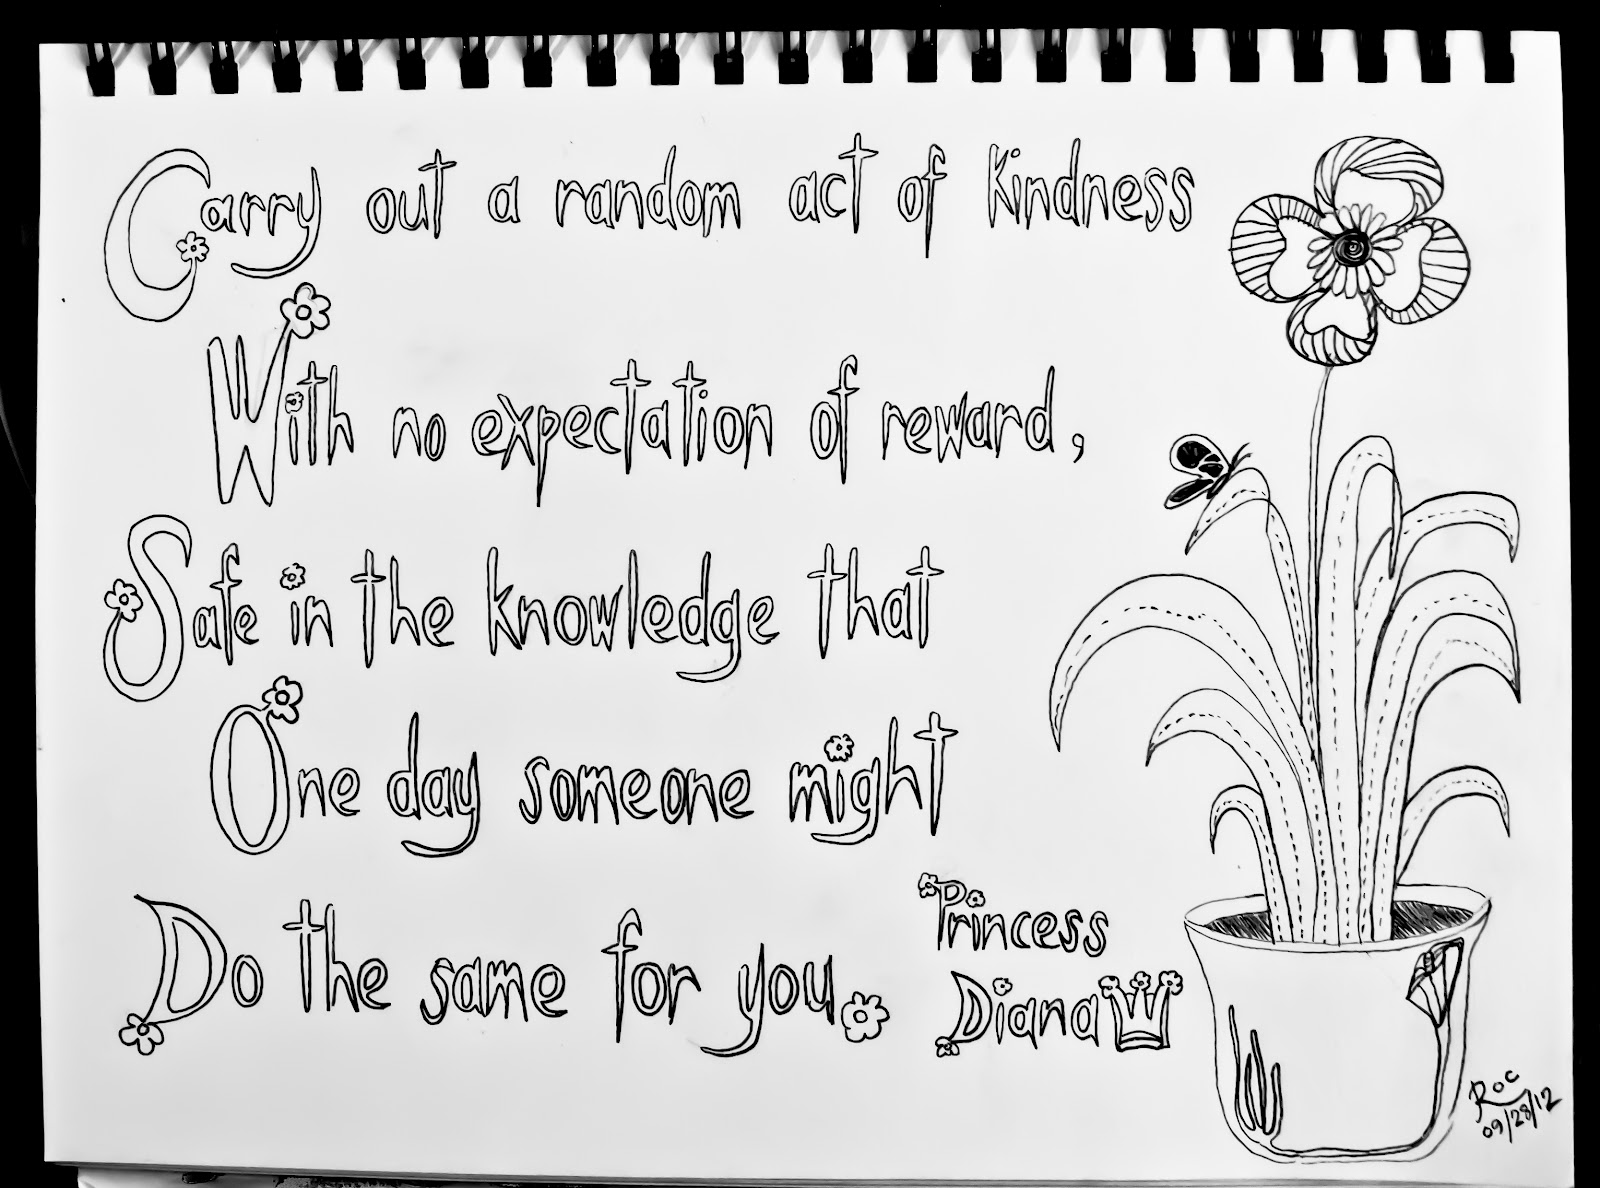 Carry out a random act of Kindness
With no expectation of reward,
Safe in the knowledge that
One day someone might
Do the same for you.
Princess
Diana
Roc
09/28/12